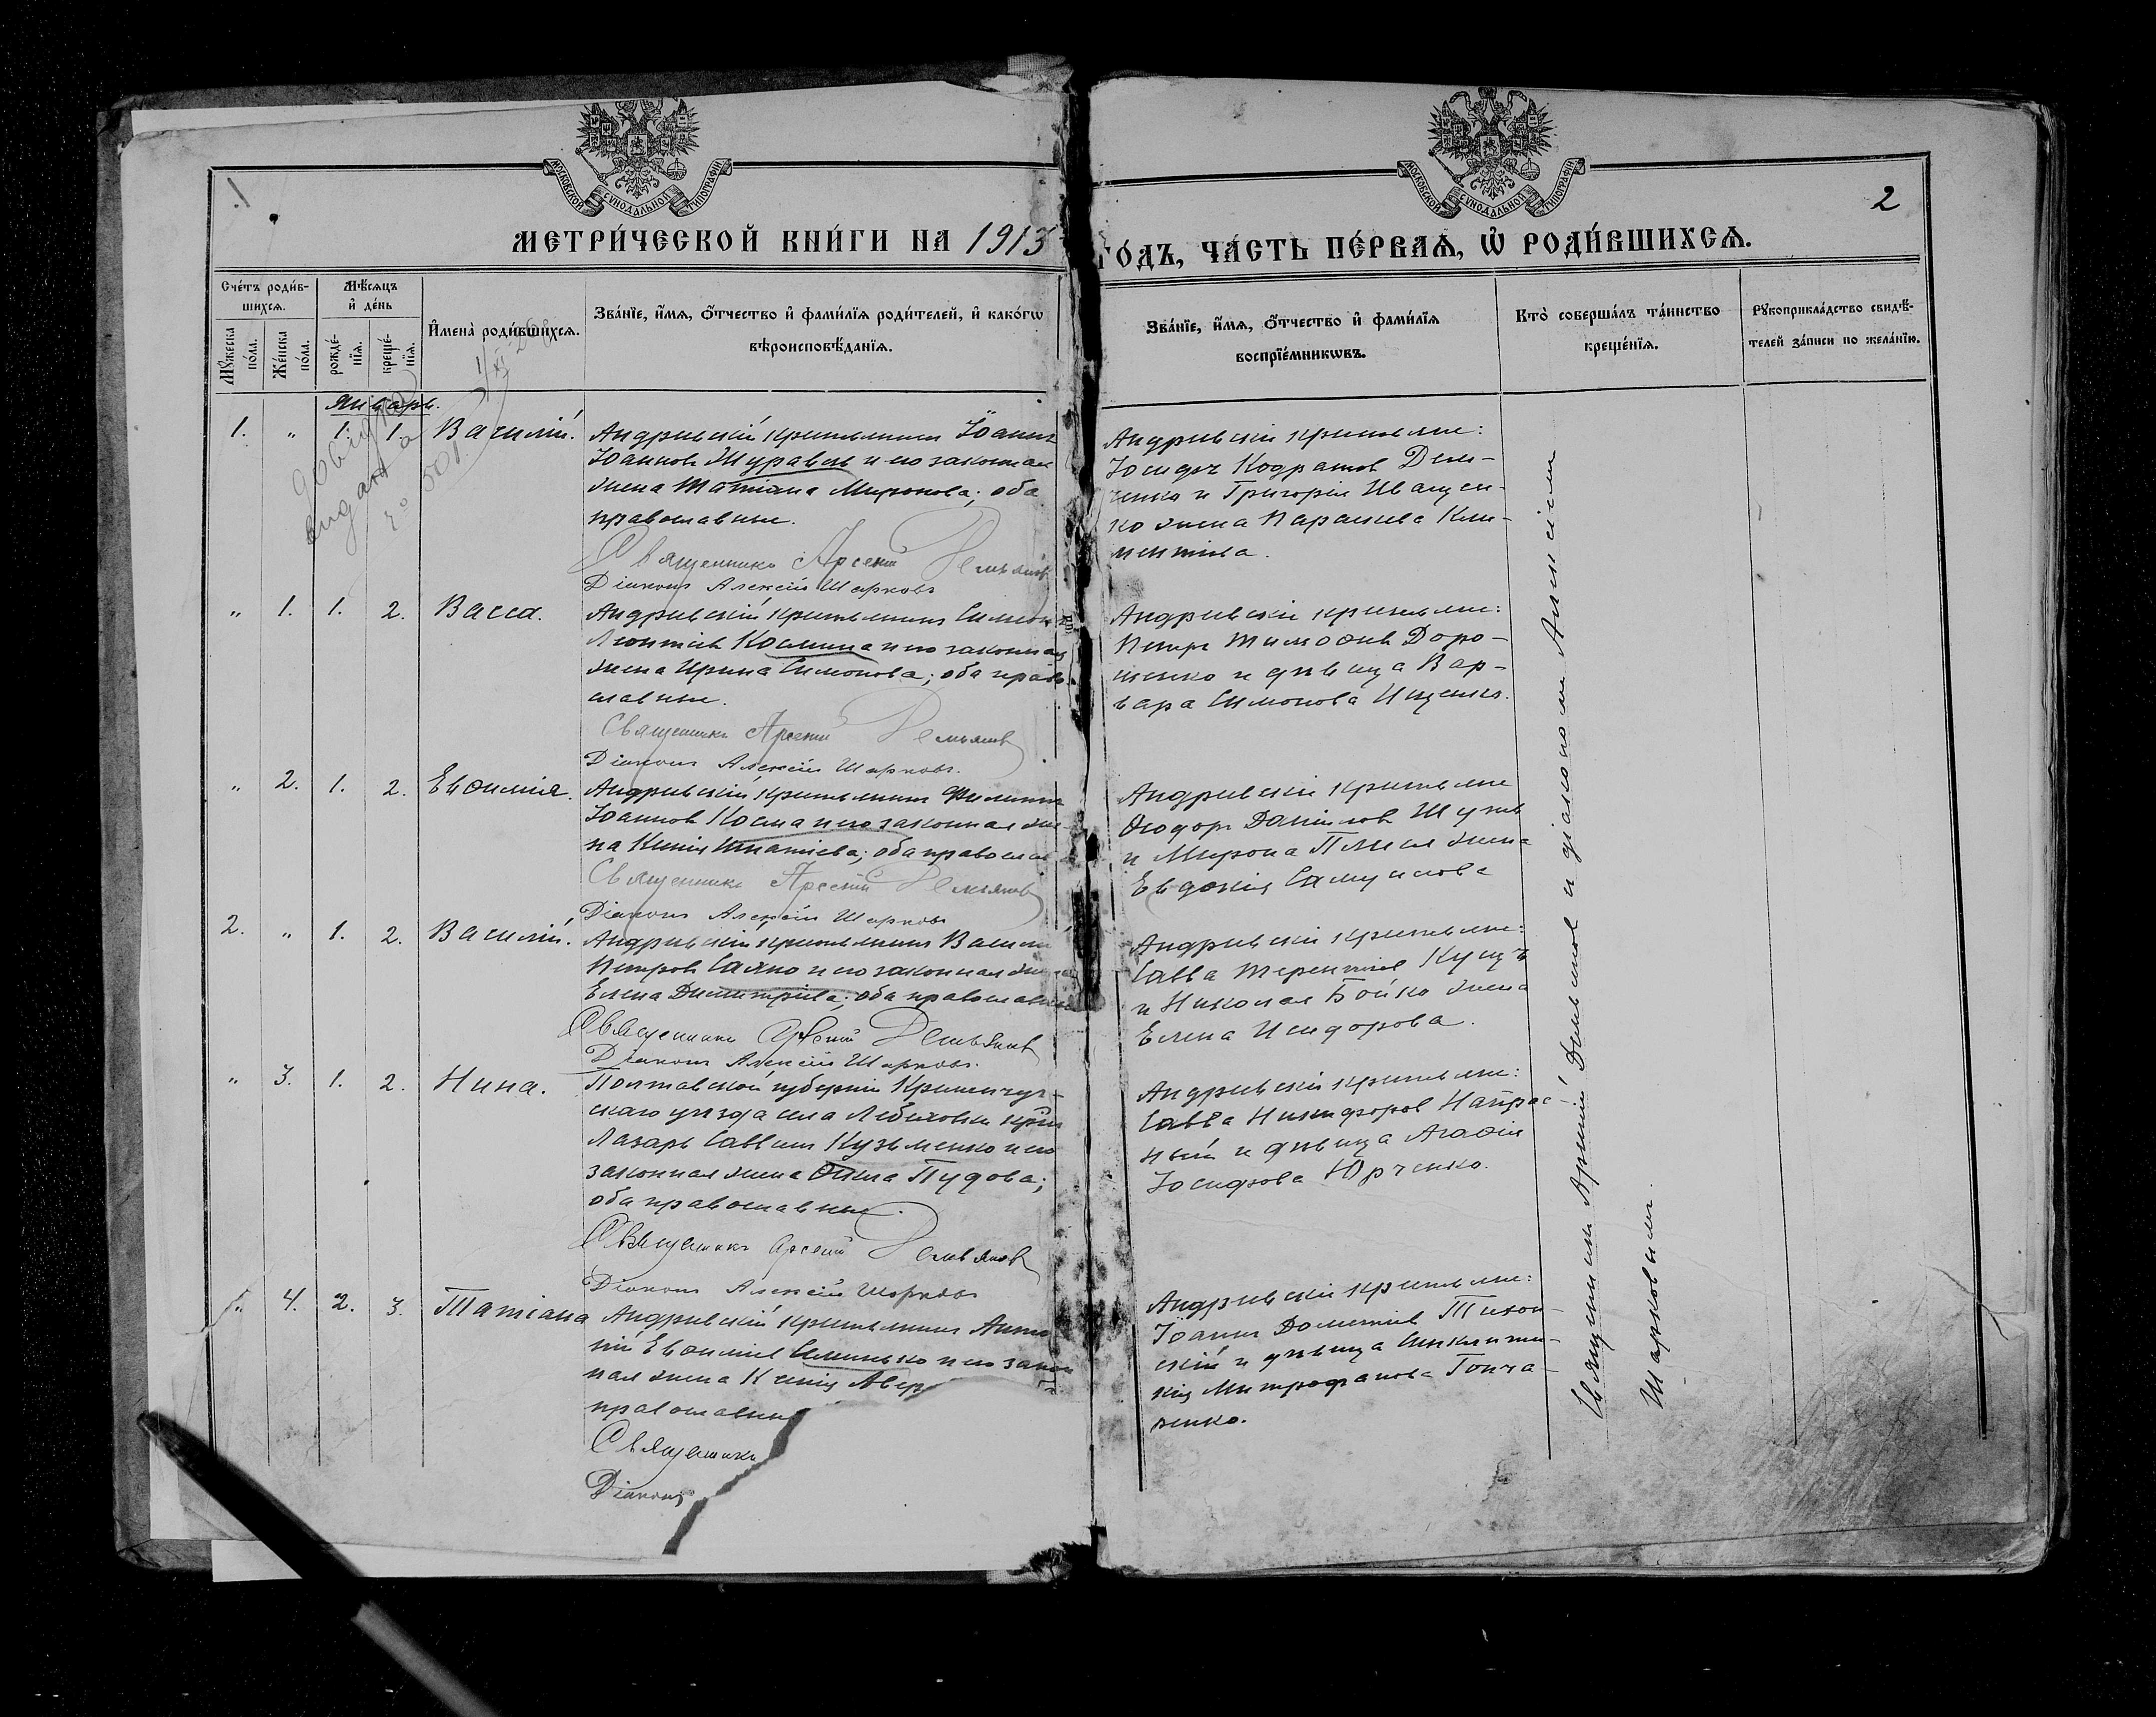 МОСКОВСКОЙ СѴНОДАЛЬНОЙ ТИПОГРАФІИ
МОСКОВСКОЙ СѴНОДАЛЬНОЙ ТИПОГРАФІИ
2
МЕТРИ́ЧЕСКОЙ КНИ́ГИ НА 1913
ГО́ДЪ, ЧА́СТЬ ПЕ́РВАѦ, Ѡ҆ РОДИ́ВШИХСѦ.
Сче́тъ роди́в-
шихсѧ.
Мꙋ́жеска по́ла.
Же́нска по́ла.
Мѣ́сѧцъ
и҆ де́нь
рожде́-
нїѧ.
креще́-
нїѧ.
И҆мена̀ роди́вшихсѧ.
Зва́нїе, и҆́мѧ, ѻ҆́тчество и҆ фами́лїѧ роди́телей, и҆ како́гѡ
вѣроисповѣ́данїѧ.
Зва́нїе, и҆́мѧ, ѻ҆́тчество и҆ фами́лїѧ
воспрїе́мникѡвъ.
Кто̀ соверша́лъ та́инство
креще́нїѧ.
Рꙋкоприкла́дство свидѣ́-
телей за́писи по жела́нїю.
Январь.
1. „ 1. 1. Василій.
Андреевскій крестьянинъ Іоаннъ
Іоанновъ Журавель и его законная
жена Татіана Миронова; оба
православные.
Священникъ Арсеній Демьяновъ
Діаконъ Алексій Шарковъ
Андреевскіе крестьяне:
Іосифъ Кодратовъ Дем-
ченко и Григорія Иващен-
ко жена Параскева Кли-
ментіева.
„ 1. 1. 2. Васса.
Андреевскій крестьянинъ Симеонъ
Леонтіевъ Космина и его законная
жена Ирина Симонова; оба право-
славные.
Священникъ Арсеній Демьяновъ
Діаконъ Алексій Шарковъ.
Андреевскіе крестьяне:
Петръ Тимоѳеевъ Доро-
шенко и дѣвица Вар-
вара Симонова Ищенко.
„ 2. 1. 2. Евѳимія.
Андреевскій крестьянинъ Филиппъ
Іоанновъ Косма и его законная же-
на Ксенія Игнатіева; оба православ
Священникъ Арсеній Демьяновъ
Діаконъ Алексій Шарковъ
Андреевскіе крестьяне
Ѳеодоръ Даніиловъ
и Мирона жена
Евдокія Самуилова
2. „ 1. 2. Василій.
Андреевскій крестьянинъ Василій
Петровъ Сахно и его законная жена
Елена Димитріева; оба православные
Священникъ Арсеній Демьяновъ
Діаконъ Алексій Шарковъ.
Андреевскіе крестьяне:
Савва Терентіевъ Куцъ
и Николая Бойко жена
Елена Исидорова.
„ 3. 1. 2. Нина.
Полтавской губерніи Кременчуг-
скаго уѣзда села крест
Лазарь Саввинъ Кузьменко и его
законная жена Ѳекла Пудова;
оба православные.
Священникъ Арсеній Демьяновъ
Діаконъ Алексій Шарковъ
Андреевскіе крестьяне:
Савва Никифоровъ
и дѣвица Агаѳія
Іосифова Юрченко.
„ 4. 2. 3. Татіана
Андреевскій крестьянинъ Анто-
ній Евѳиміевъ Семенько и его закон
ная жена Ксенія Авер
православные
Священникъ
Діаконъ
Андреевскіе крестьяне:
Іоаннъ Дометіевъ Тихон-
скій и дѣвица Синклити-
кія Митрофанова Гонча-
ренко.
Священникъ Арсеній Демьяновъ и діакономъ Алексіемъ
Шарковымъ.